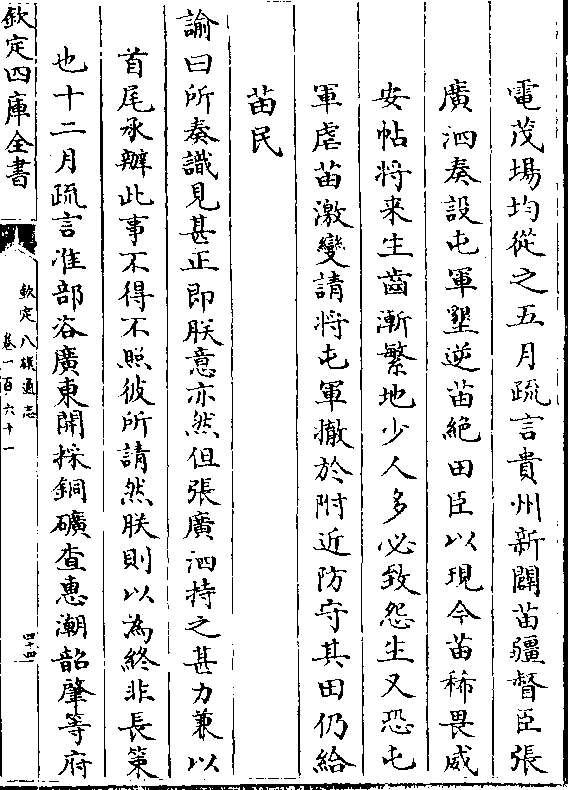 電茂場均從之五月疏言貴州新闢苗疆督臣張
廣泗奏設屯軍墾逆苗絶田臣以現今苗稀畏威
安帖将来生齒漸繁地少人多必致怨生又恐屯
軍虐苗激變請将屯軍撤於附近防守其田仍給
苗民
諭曰所奏識見甚正即朕意亦然但張廣泗持之甚力兼以
首尾承辦此事不得不照彼所請然朕則以為終非長策
也十二月疏言准部咨廣東開採銅礦查惠潮韶肇等府
欽定四庫全書
欽定八旗通志
卷一百六十一
四十四